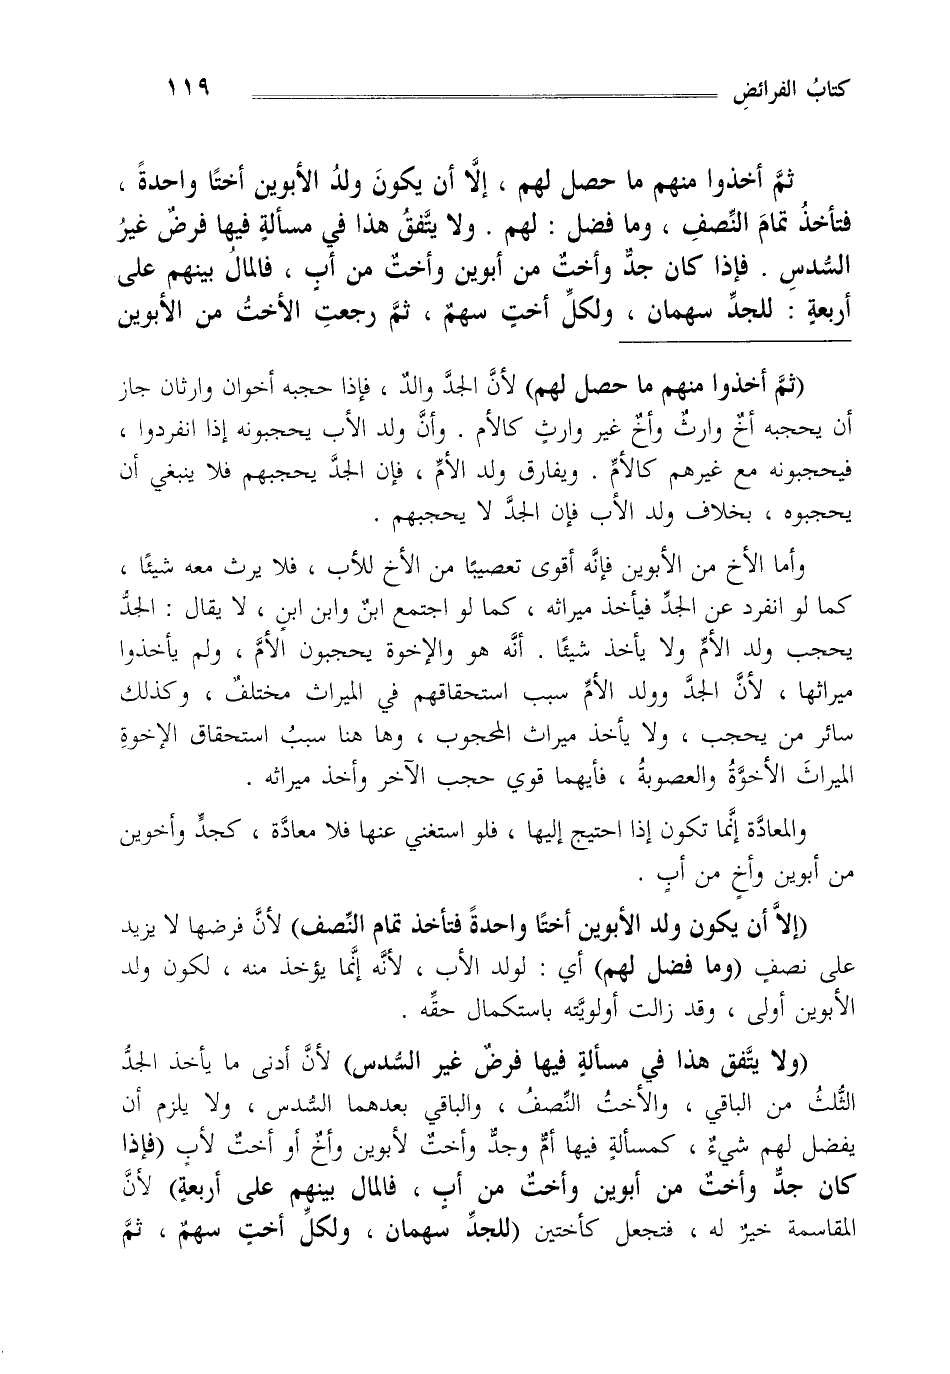 كتابُ الفرائضِ ١١٩
ثمَّ أخذوا منهم ما حصل لهم ، إلَّا أن يكونَ ولدُ الأبوين أختًا واحدةً ،
فتأخذُ تمامَ النِّصفِ ، وما فضل : لهم . ولا يتَّفقُ هذا في مسألةٍ فيها فرضٌ غيرُ
السُّدسِ . فإذا كان جدٌّ وأختٌ من أبوين وأختٌ من أبٍ ، فالمالُ بينهم على
أربعةٍ : للجدِّ سهمان ، ولكلِّ أختٍ سهمٌ ، ثمَّ رجعتِ الأختُ من الأبوين
(ثمَّ أخذوا منهم ما حصل لهم) لأنَّ الجدَّ والدٌ ، فإذا حجبه أخوان وارثان جاز
أن يحجبه أخٌ وارثٌ وأخٌ غير وارثٍ كالأم . وأنَّ ولد الأب يحجبونه إذا انفردوا ،
فيحجبونه مع غيرهم كالأمِّ . ويفارق ولد الأمِّ ، فإن الجدَّ يحجبهم فلا ينبغي أن
يحجبوه ، بخلاف ولد الأب فإن الجدَّ لا يحجبهم .
وأما الأخ من الأبوين فإنَّه أقوى تعصيبًا من الأخ للأب ، فلا يرث معه شيئًا ،
كما لو انفرد عن الجدِّ فيأخذ ميراثه ، كما لو اجتمع ابنٌ وابن ابنٍ ، لا يقال : الجدُّ
يحجب ولد الأمِّ ولا يأخذ شيئًا . أنَّه هو والإخوة يحجبون الأمَّ ، ولم يأخذوا
ميراثها ، لأنَّ الجدَّ وولد الأمِّ سبب استحقاقهم في الميراث مختلفٌ ، وكذلك
سائر من يحجب ، ولا يأخذ ميراث المحجوب ، وها هنا سببُ استحقاق الإخوةِ
الميراثَ الأخوَّةُ والعصوبةُ ، فأيهما قوي حجب الآخر وأخذ ميراثه .
والمعادَّة إنَّما تكون إذا احتيج إليها ، فلو استغني عنها فلا معادَّة ، كجدٍّ وأخوين
من أبوين وأخٍ من أبٍ .
(إلاَّ أن يكون ولد الأبوين أختًا واحدةً فتأخذ تمام النِّصف) لأنَّ فرضها لا يزيد
على نصفٍ (وما فضل لهم) أي : لولد الأب ، لأنَّه إنَّما يؤخذ منه ، لكون ولد
الأبوين أولى ، وقد زالت أولويَّته باستكمال حقِّه .
(ولا يتَّفق هذا في مسألةٍ فيها فرضٌ غير السُّدس) لأنَّ أدنى ما يأخذ الجدُّ
الثُّلثُ من الباقي ، والأختُ النِّصفُ ، والباقي بعدهما السُّدس ، ولا يلزم أن
يفضل لهم شيءٌ ، كمسألةٍ فيها أمٌّ وجدٌّ وأختٌ لأبوين وأخٌ أو أختٌ لأبٍ (فإذا
كان جدٌّ وأختٌ من أبوين وأختٌ من أبٍ ، فالمال بينهم على أربعةٍ) لأنَّ
المقاسمة خيرٌ له ، فتجعل كأختين (للجدِّ سهمان ، ولكلِّ أختٍ سهمٌ ، ثمَّ